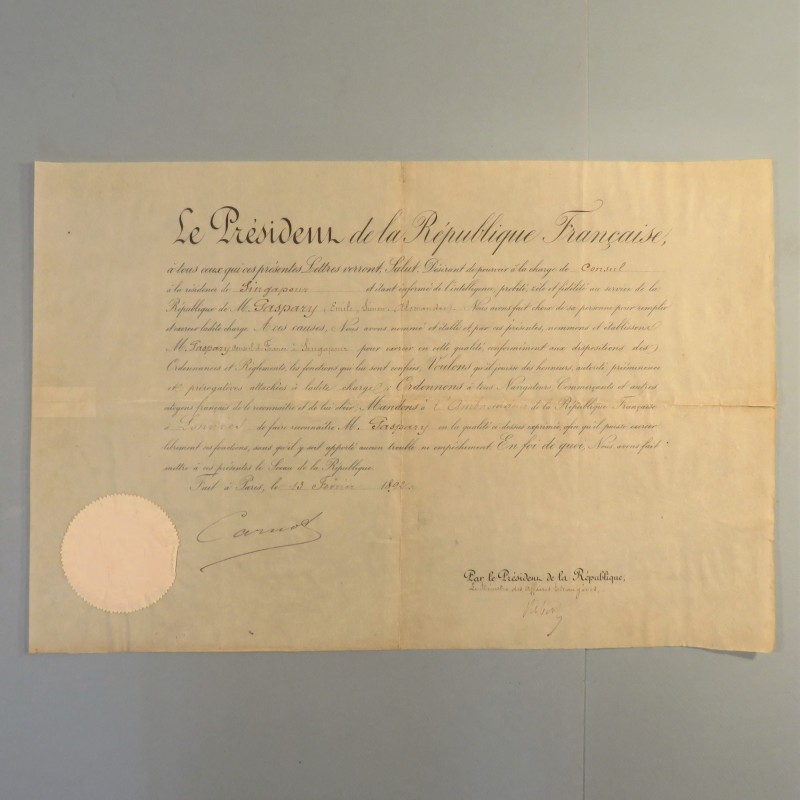 Le Président de la République Française,
à tous ceux que ces présentes Lettres verront, Salut. Désirant de pourvoir à la charge de Consul
à la résidence de Singapour et étant informé de l'intelligence, probité, zèle et fidélité au service de la
République de M. Gaspary (Emile Simon Alexandre) Nous avons fait choix de sa personne pour remplir
et exercer ladite charge. A ces causes, Nous avons nommé et établi et par ces présentes, nommons et établissons
M. Gaspary Consul de France à Singapour pour exercer en cette qualité, conformément aux dispositions des
Ordonnances et Règlements, les fonctions qui lui sont confiées. Voulons qu'il jouisse des honneurs, autorité, prééminences
et prérogatives attachées à ladite charge; Ordonnons à tous Navigateurs, Commerçants et autres
citoyens français de le reconnaître et de lui obéir. Mandons à l'Ambassadeur de la République Française
à Londres de faire reconnaître M. Gaspary en la qualité ci dessus exprimée, afin qu'il puisse exercer
librement ses fonctions, sans qu'il y soit apporté aucun trouble ni empêchement. En foi de quoi, Nous avons fait
mettre à ces présentes le Sceau de la République.
Fait à Paris, le 13 Février 189
Carnot
Par le Président de la République,
Le Ministre des Affaires Etrangères,